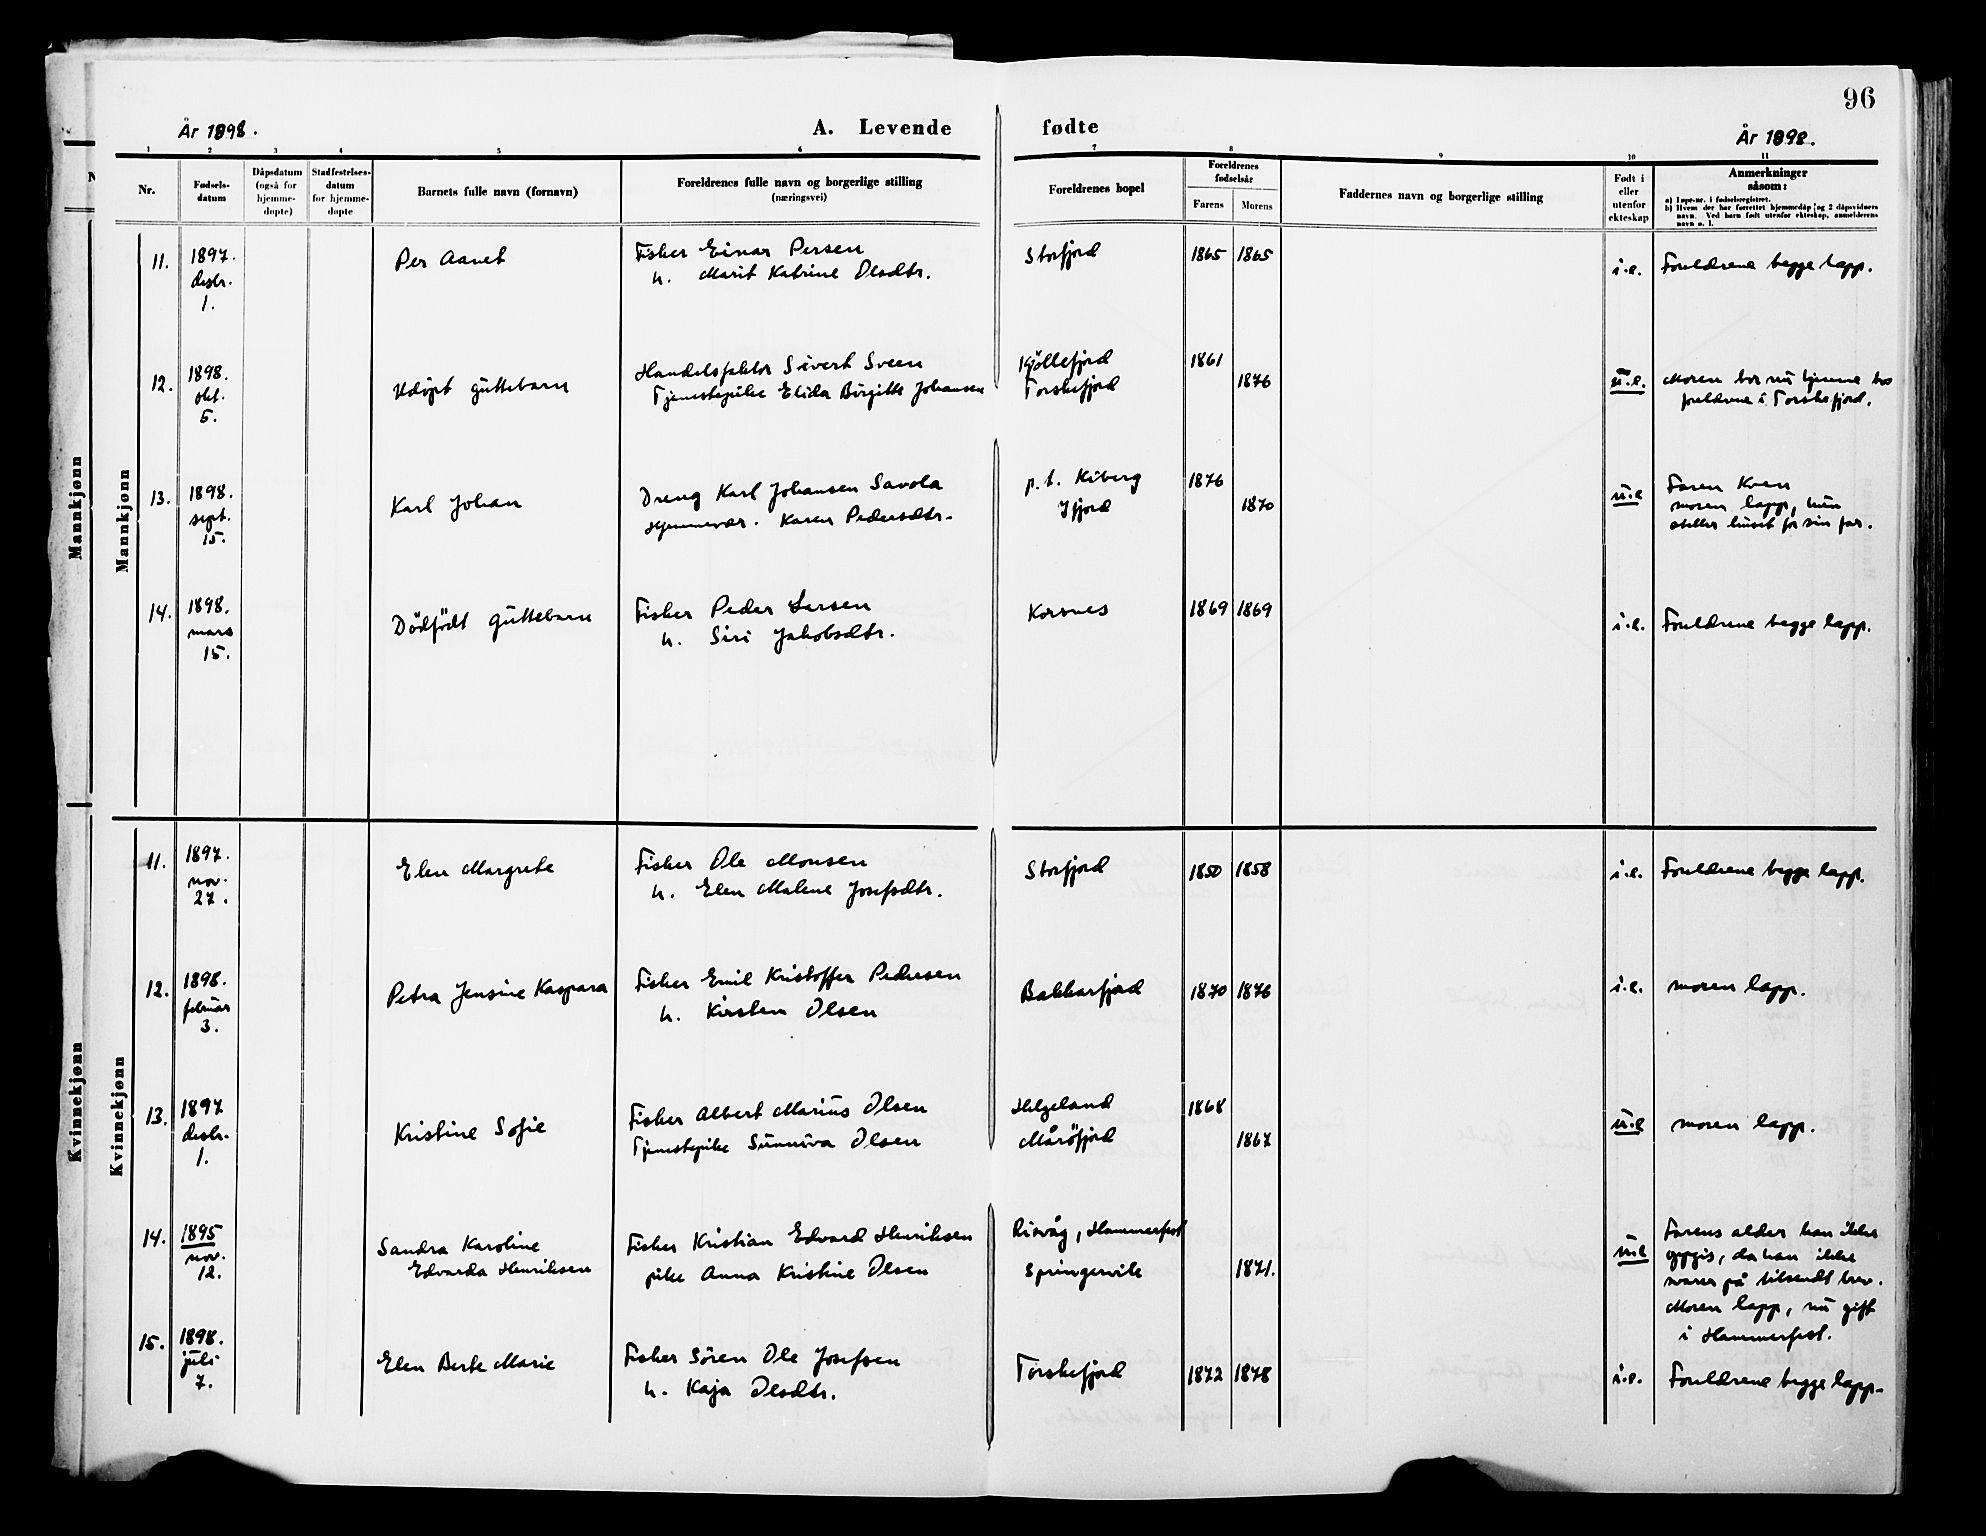 96
År 1898.
A. Levende fødte
År 1898.
1 2 3 4 5 6 7 8 9 10 11
Nr.
Fødsels-
datum
Dåpsdatum
(også for
hjemme-
døpte)
Stadfestelses-
datum
for hjemme-
døpte
Barnets fulle navn (fornavn)
Foreldrenes fulle navn og borgerlige stilling
(næringsvei)
Foreldrenes bopel
Foreldrenes
fødselsår
Farens Morens
Faddernes navn og borgerlige stilling
Født i
eller
utenfor
ekteskap
Anmerkninger
såsom:
a) Løpe-nr. i fødselsregistret.
b) Hvem der har forrettet hjemmedåp og 2 dåpsvidners
navn. Ved barn født utenfor ekteskap, anmelderens
navn o. l.
Mannkjønn
Mannkjønn
11.
1897.
desbr.
1.
Per Aanet
Fisker Einar Persen
h. Marit Katrine Olsdtr.
Storfjord
1865 1865
i.e.
Foreldrene begge lapp.
12.
1898.
okt.
5.
Udøpt guttebarn
Handelsfaktor Sivert Sveen
Tjenestepike Elida Birgitte Johansen
Kjöllefjord
Torskefjord
1861
1876
u.e.
Moren bor nu hjemme hos
foreldrene i Torskefjord.
13.
1898.
sept.
15.
Karl Johan
Dreng Karl Johansen Savola
Hjemmevær. Karen Pedersdtr.
p.t. Kiberg
Ifjord
1876
1870
u.e
Faren Kven
moren lapp, hun
steller huset for sin far.
14.
1898.
mars
15.
Dödfödt guttebarn
Fisker Peder Larsen
h. Siri Jakobsdtr.
Korsnes
1869 1869
i.e.
Foreldrene begge lapp.
Kvinnekjønn
Kvinnekjønn
11.
1897.
nov.
27.
Elen Margrete
Fisker Ole Monsen
h. Elen Malene Josefsdtr.
Storfjord
1850 1858
i.e.
Foreldrene begge lapp.
12.
1898.
februar
3.
Petra Jensine Kaspara
Fisker Emil Kristoffer Pedersen
h. Kirsten Olsen
Bakkarfjord
1870 1876
i.e.
moren lapp.
13.
1897
desbr.
1.
Kristine Sofie
Fisker Albert Marius Olsen
Tjenestepike Sunniva Olsen
Helgeland
Måröfjord
1868
1867
u.e
moren lapp.
14.
1895
nov.
12.
Sandra Karoline
Edvarda Henriksen
Fisker Kristian Edvard Henriksen
pike Anna Kristine Olsen
Risvåg, Hammerfest
Springervik
1871.
u.e
Farens alder kan ikke
opgis, da han ikke
svarer på tilsendt brev.
Moren lapp, nu gift
i Hammerfest.
15.
1898.
juli
7.
Elen Berte Marie
Fisker Sören Ole Josefsen
h. Kaja Olsdtr.
Torskefjord
1872 1878
i.e.
Foreldrene begge lapp.